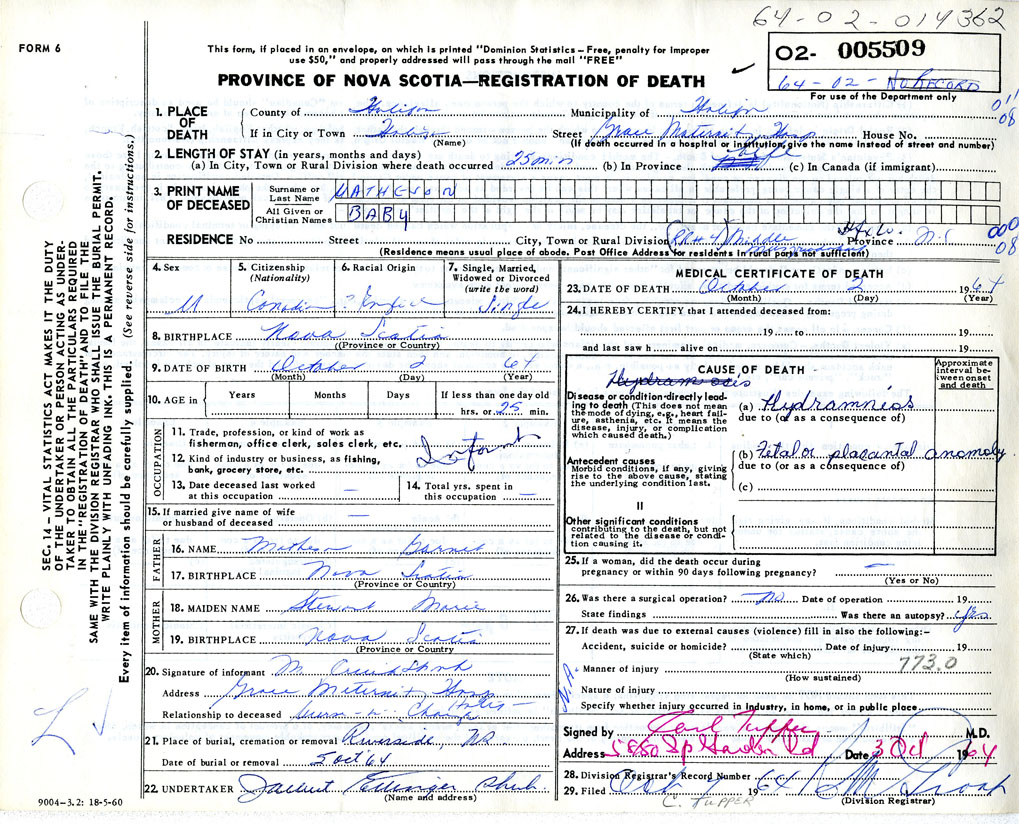 64-02-014362
FORM 6
This form, if placed in an envelope, on which is printed "Dominion Statistics—Free, penalty for improper
use $50," and properly addressed will pass through the mail "FREE"
02- 005509
64-02- NO RECORD
For use of the Department only
PROVINCE OF NOVA SCOTIA—REGISTRATION OF DEATH
011
08
1. PLACE OF DEATH
County of Halifax Municipality of Halifax
If in City or Town Halifax Street Grace Maternity Hosp House No.
(Name) (If death occurred in a hospital or institution, give the name instead of street and number)
2. LENGTH OF STAY (in years, months and days)
(a) In City, Town or Rural Division where death occurred 25 min (b) In Province Life (c) In Canada (if immigrant)
3. PRINT NAME OF DECEASED
Surname or Last Name MATHESON
All Given or Christian Names BABY
RESIDENCE No Street City, Town or Rural Division RR#4 Middle Musquodoboit Hfx Co. Province N.S
000
08
(Residence means usual place of abode. Post Office Address for residents in rural parts not sufficient)
4. Sex M
5. Citizenship (Nationality) Canadian
6. Racial Origin ? English
7. Single, Married, Widowed or Divorced (write the word) Single
8. BIRTHPLACE Nova Scotia
(Province or Country)
9. DATE OF BIRTH October 2 64
(Month) (Day) (Year)
10. AGE in Years Months Days If less than one day old
hrs. or 25 min.
OCCUPATION
11. Trade, profession, or kind of work as
fisherman, office clerk, sales clerk, etc. Infant
12. Kind of industry or business, as fishing,
bank, grocery store, etc.
13. Date deceased last worked
at this occupation —
14. Total yrs. spent in
this occupation —
15. If married give name of wife
or husband of deceased —
FATHER
16. NAME Matheson Garnet
17. BIRTHPLACE Nova Scotia
(Province or Country)
MOTHER
18. MAIDEN NAME Stewart Marie
19. BIRTHPLACE Nova Scotia
(Province or Country
20. Signature of informant M.
Address Grace Maternity Hosp
Relationship to deceased Nurse-in-Charge
21. Place of burial, cremation or removal Riverside, NS
Date of burial or removal 5 Oct 64
22. UNDERTAKER Ettinger Shub
(Name and address)
9004-3.2: 18-5-60
MEDICAL CERTIFICATE OF DEATH
23. DATE OF DEATH October 2 1964
(Month) (Day) (Year)
24. I HEREBY CERTIFY that I attended deceased from:
19 to 19
and last saw h alive on 19
CAUSE OF DEATH
Approximate interval between onset and death
Disease or condition directly leading to death (This does not mean the mode of dying, e.g., heart failure, asthenia, etc. It means the disease, injury, or complication which caused death.)
(a) Hydramnios
due to (or as a consequence of)
Antecedent causes
Morbid conditions, if any, giving rise to the above cause, stating the underlying condition last.
(b) Fetal or placental anomoly
due to (or as a consequence of)
(c)
II
Other significant conditions
contributing to the death, but not related to the disease or condition causing it.
25. If a woman, did the death occur during
pregnancy or within 90 days following pregnancy? —
(Yes or No)
26. Was there a surgical operation? No Date of operation 19
State findings Was there an autopsy? Yes
27. If death was due to external causes (violence) fill in also the following:—
Accident, suicide or homicide? Date of injury 19
(State which)
773.0
N.A.
Manner of injury
(How sustained)
Nature of injury
Specify whether injury occurred in industry, in home, or in public place
Signed by Carl Tupper M.D.
Address 5880 Sp Garden Rd Date 3 Oct 1964
28. Division Registrar's Record Number
29. Filed Oct 7 1964
(Division Registrar)
C. TUPPER
SEC. 14 – VITAL STATISTICS ACT MAKES IT THE DUTY
OF THE UNDERTAKER OR PERSON ACTING AS UNDER-
TAKER TO OBTAIN ALL THE PARTICULARS REQUIRED
IN THE "REGISTRATION OF DEATH" AND TO FILE THE
SAME WITH THE DIVISION REGISTRAR WHO SHALL ISSUE THE BURIAL PERMIT.
WRITE PLAINLY WITH UNFADING INK. THIS IS A PERMANENT RECORD.
Every item of information should be carefully supplied. (See reverse side for instructions.)